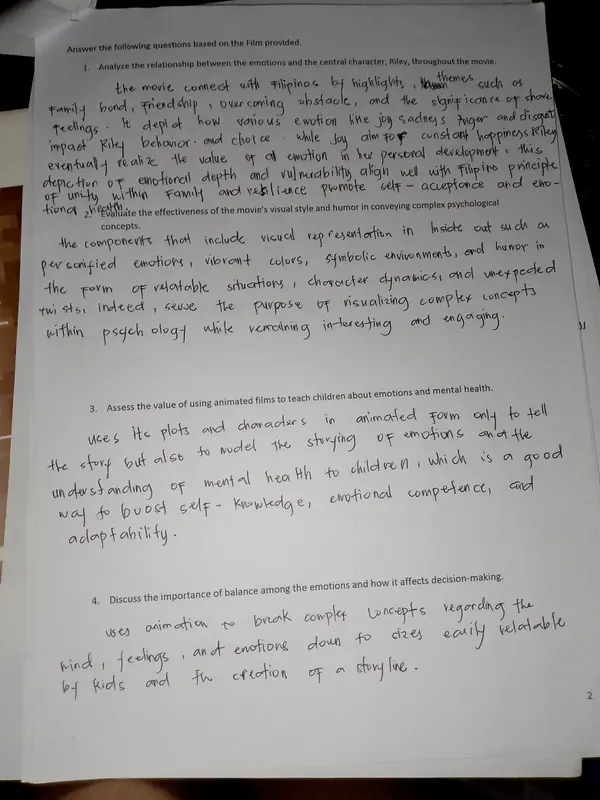 Answer the following questions based on the Film provided.
1. Analyze the relationship between the emotions and the central character, Riley, throughout the movie.
the movie connect with Filipinos by highlights, themes such as
Family bond, Friendship, overcoming obstacle, and the significance of share
Feelings. It depict how various emotion like joy sadness Anger and disgust
impact Riley behavior and choice. While Joy aim for constant happiness Riley
eventually realize the value of all emotion in her personal development, this
depiction of emotional depth and vulnerability align well with Filipino principle
of unity within Family and resilience promote self-acceptance and emo-
tional health.
2. Evaluate the effectiveness of the movie's visual style and humor in conveying complex psychological
concepts.
the components that include visual representation in Inside out such as
personified emotions, vibrant colors, symbolic environments, and humor in
the form of relatable situations, character dynamics, and unexpected
twists, indeed, serve the purpose of visualizing complex concepts
within psychology while remaining interesting and engaging.
3. Assess the value of using animated films to teach children about emotions and mental health.
uses its plots and characters in animated form only to tell
the story but also to model the storying of emotions and the
understanding of mental health to children, which is a good
way to boost self-knowledge, emotional competence, and
adaptability.
4. Discuss the importance of balance among the emotions and how it affects decision-making.
uses animation to break complex concepts regarding the
mind, feelings, and emotions down to sizes easily relatable
by kids and the creation of a story line.
2